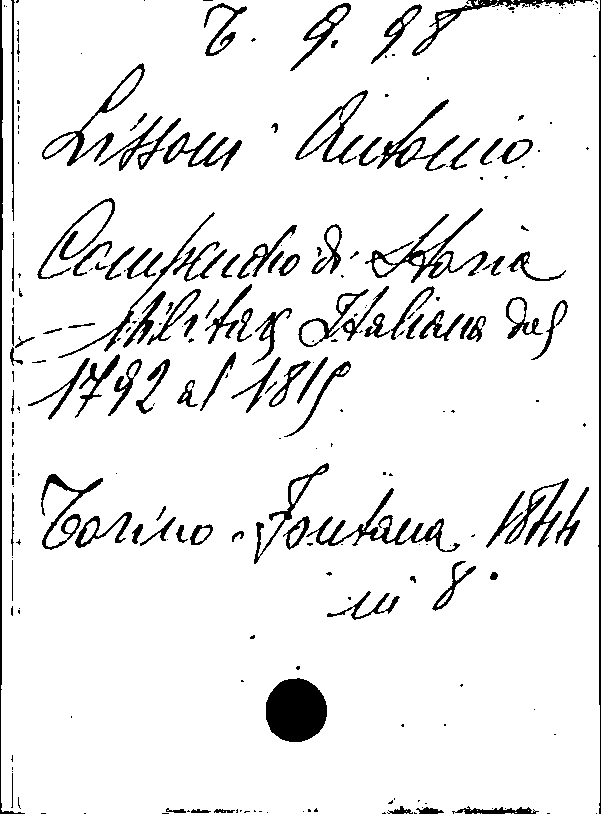 T. 9. 98
Lissoni Antonio
Compendio di Storia
Militare Italiana dal
1792 al 1815
Torino. Fontana. 1844
in 8°